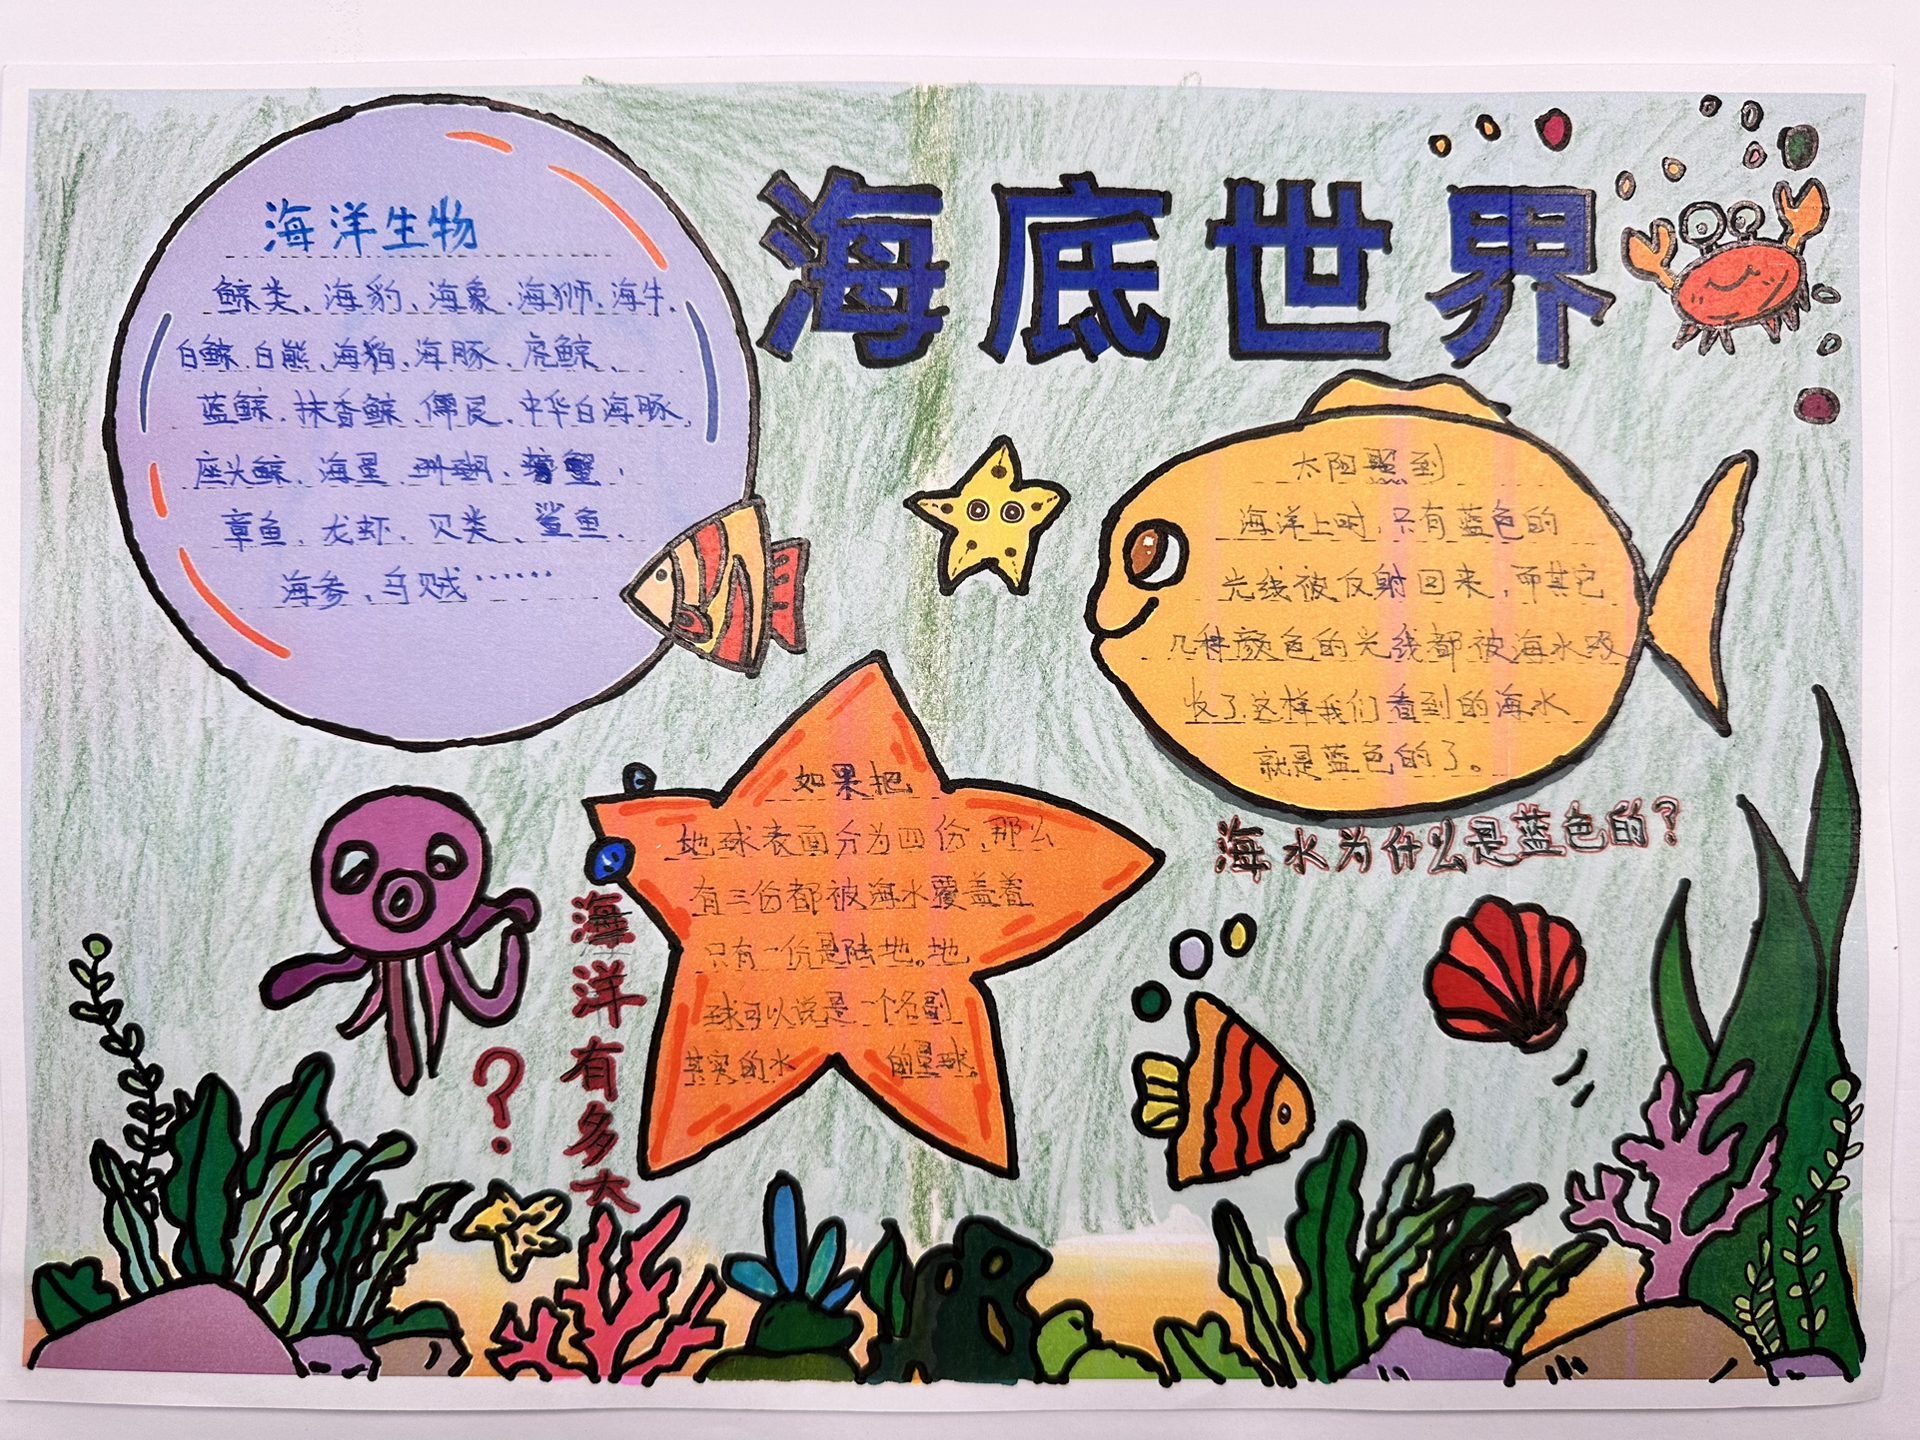 海底世界
海洋生物
鲸类、海豹、海象、海狮、海牛、
白鲸、白熊、海狗、海豚、虎鲸、
蓝鲸、抹香鲸、儒艮、中华白海豚、
座头鲸、海星、珊瑚、螃蟹、
章鱼、龙虾、贝类、鲨鱼、
海参、乌贼……
太阳照到
海洋上时，只有蓝色的
光线被反射回来，而其它
几种颜色的光线都被海水吸
收了这样我们看到的海水
就是蓝色的了。
海水为什么是蓝色的？
如果把
地球表面分为四份，那么
有三份都被海水覆盖着
只有一份是陆地。地
球可以说是一个名副
其实的水 的星球。
海洋有多大
？